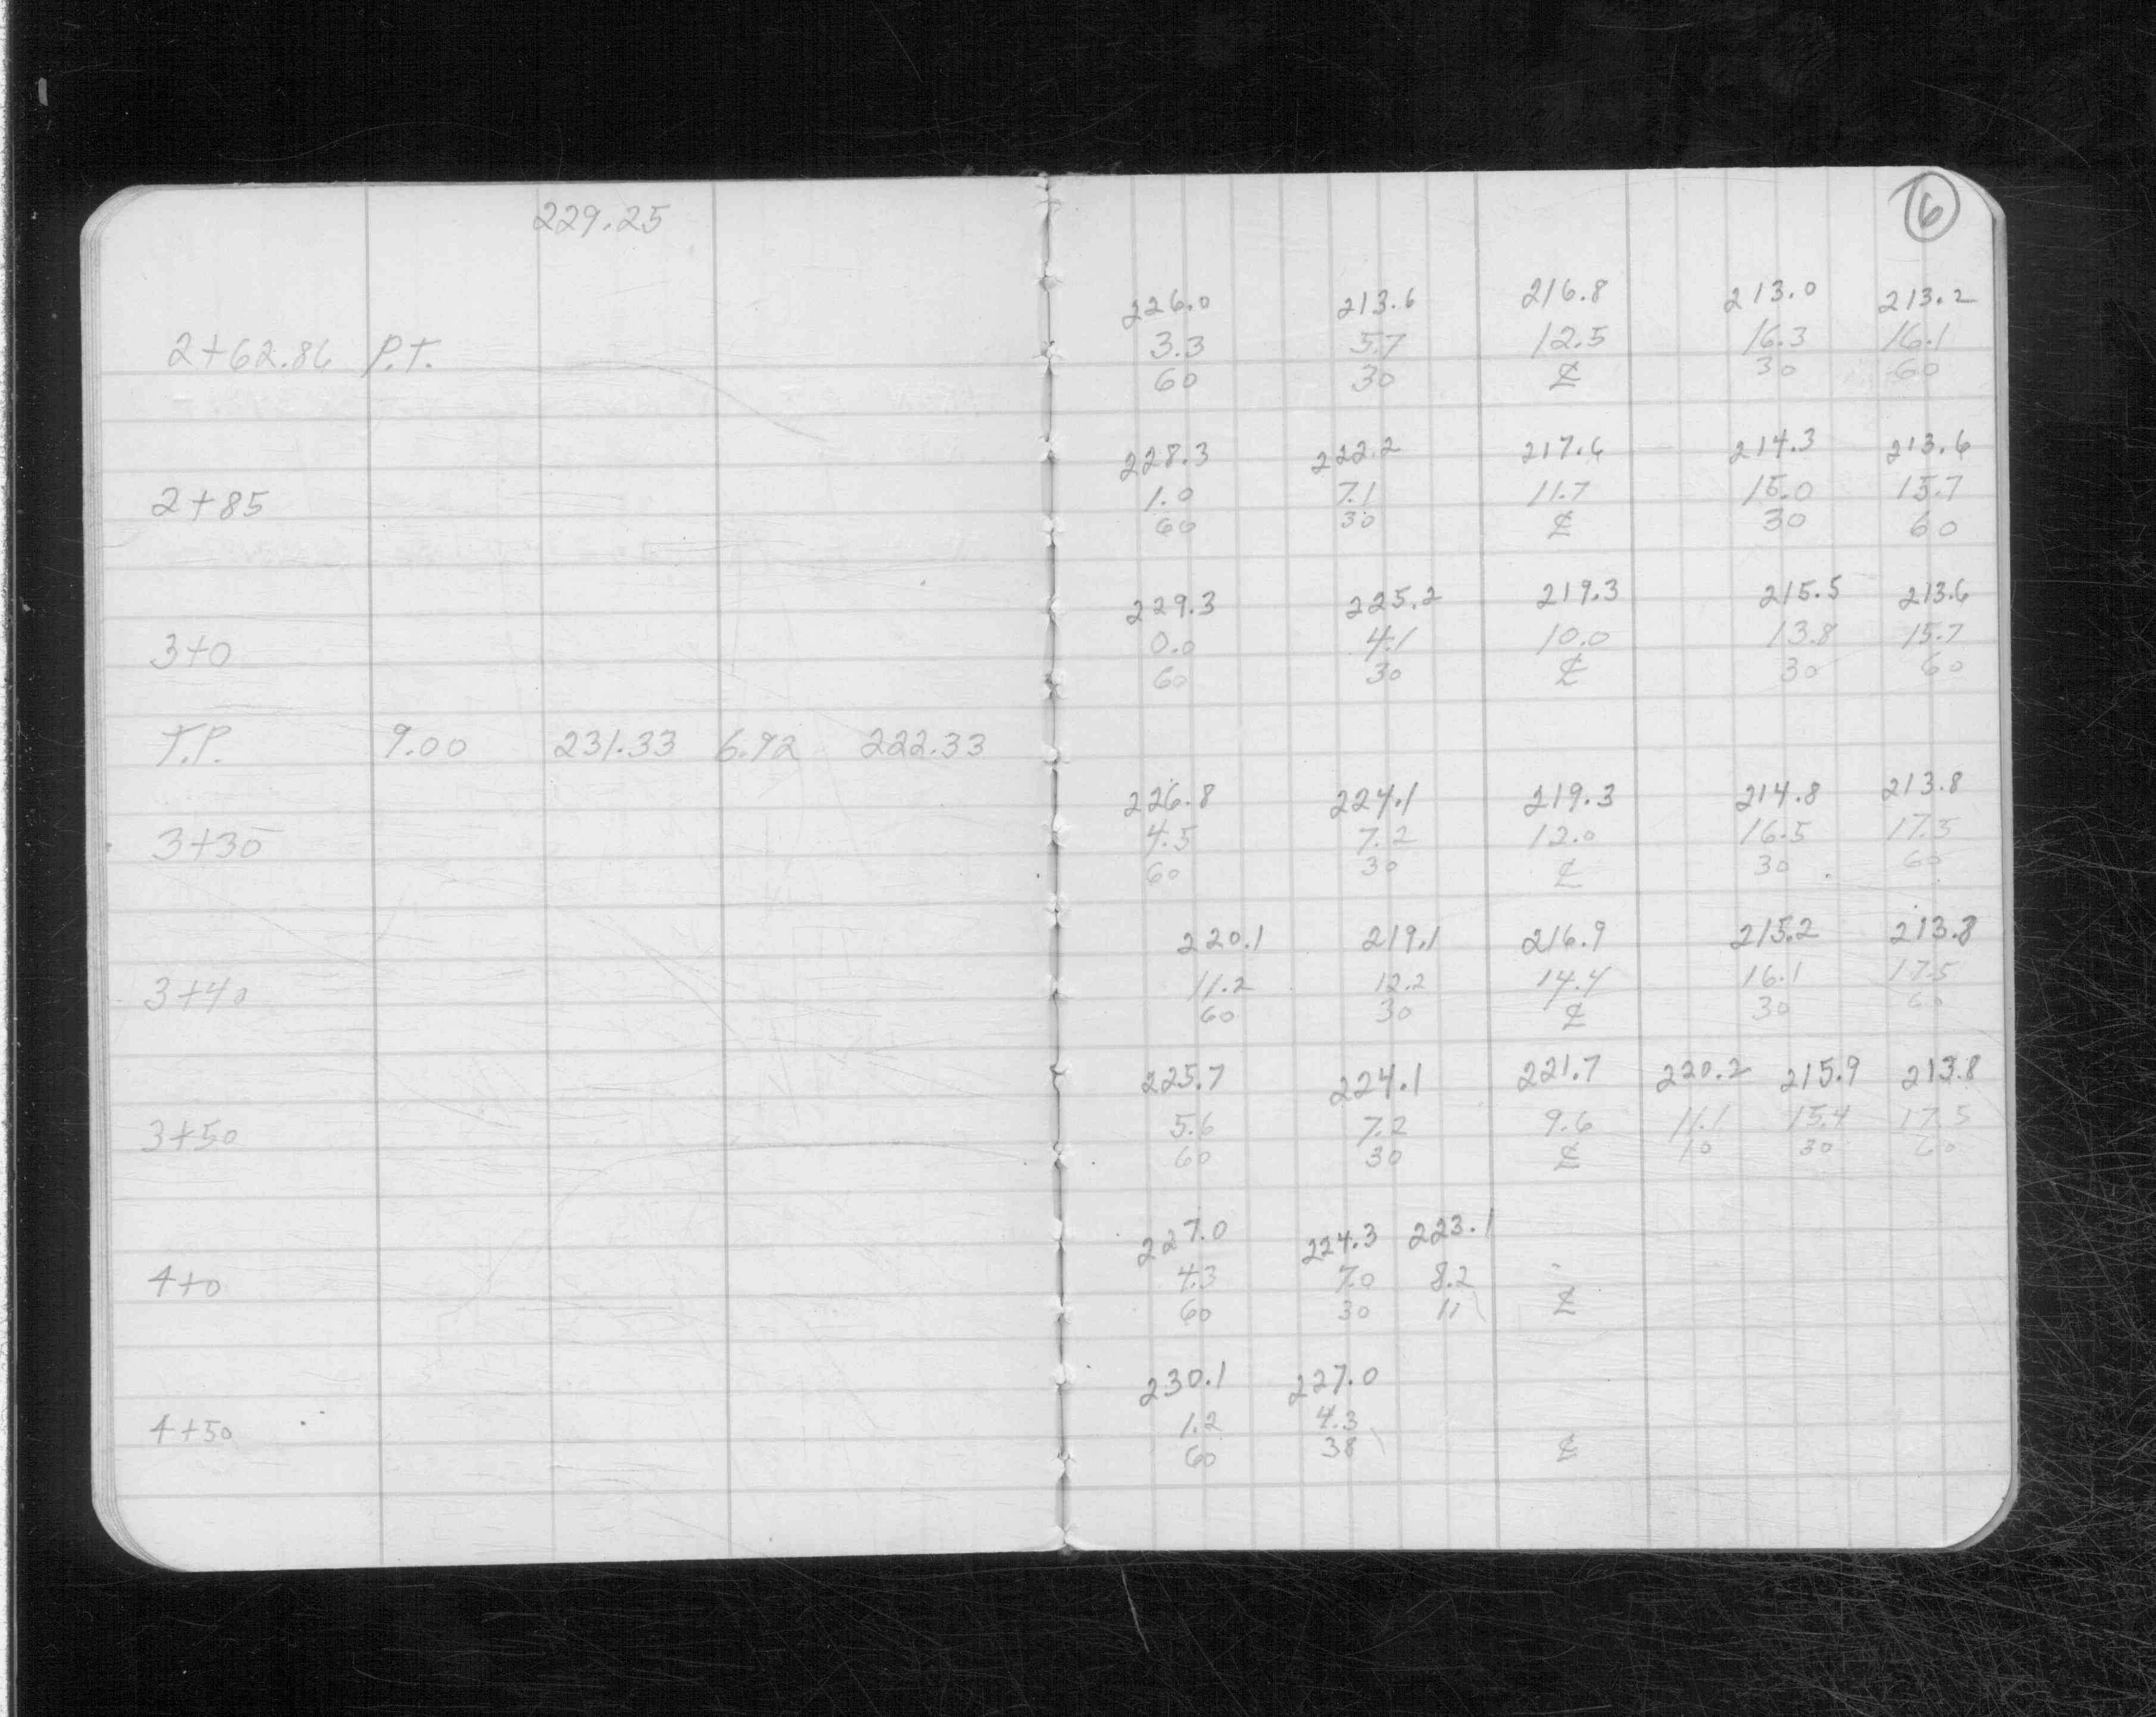 229.25
6
226.0 213.6 216.8 213.0 213.2
2+62.86 P.T. 3.3 5.7 12.5 16.3 16.1
60 30 ℄ 30 60
228.3 222.2 217.6 214.3 213.6
2+85 1.0 7.1 11.7 15.0 15.7
60 30 ℄ 30 60
229.3 225.2 219.3 215.5 213.6
3+0 0.0 4.1 10.0 13.8 15.7
60 30 ℄ 30 60
T.P. 9.00 231.33 6.92 222.33
226.8 224.1 219.3 214.8 213.8
3+30 4.5 7.2 12.0 16.5 17.5
60 30 ℄ 30 60
220.1 219.1 216.9 215.2 213.8
3+40 11.2 12.2 14.4 16.1 17.5
60 30 ℄ 30 60
225.7 224.1 221.7 220.2 215.9 213.8
3+50 5.6 7.2 9.6 11.1 15.4 17.5
60 30 ℄ 10 30 60
227.0 224.3 223.1
4+0 4.3 7.0 8.2
60 30 11 ℄
230.1 227.0
4+50 1.2 4.3
60 38 ℄